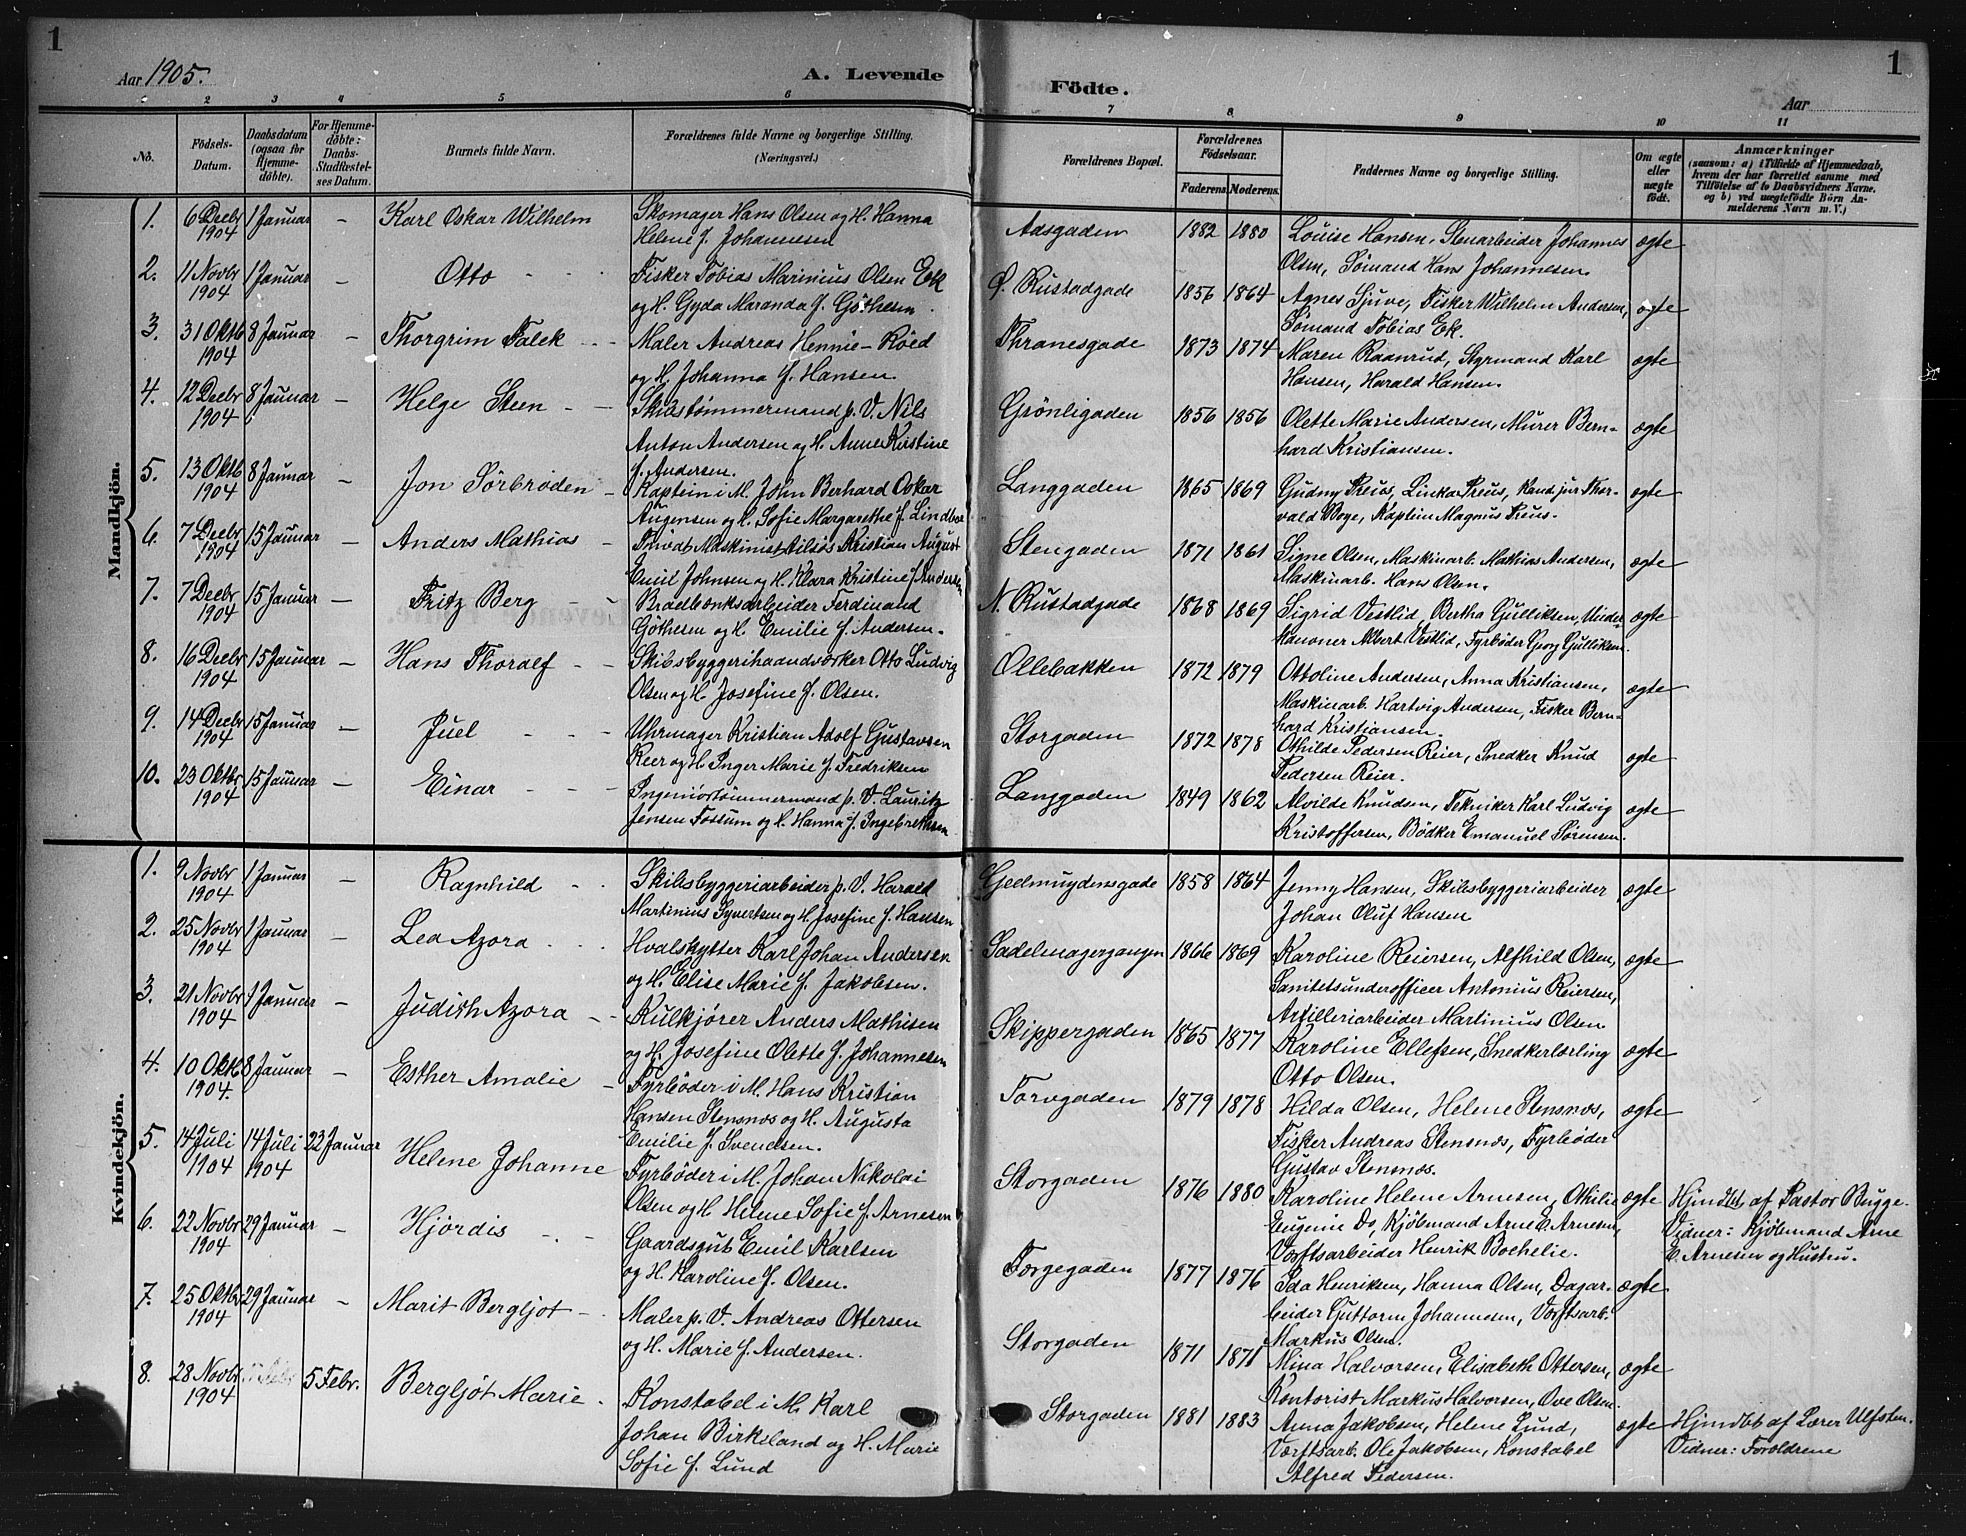 1
Aar 1905.
A. Levende
Födte.
Aar
1
1 2 3 4 5 6 7 8 9 10 11
No.
Födsels-Datum.
Daabsdatum (ogsaa for Hjemme-döbte).
For Hjemme-döbte: Daabs-Stadfæstel-ses Datum.
Barnets fulde Navn.
Forældrenes fulde Navne og borgerlige Stilling. (Næringsvei.)
Forældrenes Bopæl.
Forældrenes Födselsaar.
Faderens. Moderens.
Faddernes Navne og borgerlige Stilling.
Om ægte eller uægte født.
Anmærkninger
(saasom: a) i Tilfælde af Hjemmedaab, hvem der har forrettet samme med Tilföielse af to Daabsvidners Navne. og b) ved uægtefödte Börn An-melderens Navn m. V.)
Mandkjön.
1. 6 Decbr 1904 1 Januar – Karl Oskar Wilhelm Skomager Hans Olsen og H. Hanna
Helene f. Johannesen Aasgaden 1882 1880 Louise Hansen, Stenarbeider Johannes
Olsen, Sømand Hans Johannesen. ægte
2. 11 Novbr 1904 1 Januar – Otto Fisker Tobias Marinius Olsen Ek
og H. Gyda Maranda f. Göthesen. Ø. Rustadgade 1856 1864 Agnes Sjuve, Fisker Wilhelm Andersen,
Sømand Tobias Ek. ægte
3. 31 Oktb 1904 8 Januar – Thorgrim Falck Maler Andreas Hennie-Røed
og H. Johanna f. Hansen. Thranesgade 1873 1874 Maren Raanrud, Styrmand Karl
Hansen, Harald Hansen. ægte
4. 12 Decbr 1904 8 Januar – Helge Steen Skibstømmermand p. V. Nils
Anton Andersen og H. Anne Kristine
f. Andersen. Grønligaden 1856 1856 Olette Marie Andersen, Murer Bern-
hard Kristiansen. ægte
5. 13 Oktb 1904 8 Januar – Jon Sørbrøden Kaptein i M. John Berhard Oskar
Augensen og H. Sofie Margarethe f. Lindboe Langgaden 1865 1869 Gudny Preus, Linka Preus, Kand. jur Thor-
vald Boye, Kaptein Magnus Preus. ægte
6. 7 Decbr 1904 15 Januar – Anders Mathias Kristian August
Emil Johnsen og H. Klara Kristine f. Andersen Stengaden 1871 1861 Signe Olsen, Maskinarb. Mathias Andersen,
Maskinarb. Hans Olsen. ægte
7. 7 Decbr 1904 15 Januar – Fritz Berg Bradbænksarbeider Ferdinand
Göthesen og H. Emilie f. Andersen. N. Rustadgade 1868 1869 Sigrid Vestlid, Bertha Gulliksen, Under-
kanoner Albert Vestlid, Fyrbøder Georg Gulliksen. ægte
8. 16 Decbr 1904 15 Januar – Hans Thoralf Skibsbyggerihaandværker Otto Ludvig
Olsen og H. Josefine f. Olsen. Ollebakken 1872 1879 Ottoline Andersen, Anna Kristiansen,
Maskinarb. Hartvig Andersen, Fisker Bern-
hard Kristiansen. ægte
9. 14 Decbr 1904 15 Januar – Juel Uhrmager Kristian Adolf Gustavsen
Reer og H. Inger Marie f. Fredriksen Storgaden 1872 1878 Othilde Pedersen Reier, Snedker Knud
Pedersen Reier. ægte
10. 23 Oktbr 1904 15 Januar – Einar Ingeniørtømmermand p. V. Lauritz
Jensen Fossum og H. Hanna f. Ingebrethsen Langgaden 1849 1862 Alvilde Knudsen, Tekniker Karl Ludvig
Kristoffersen, Bødker Emanuel Sørensen. ægte
Kvindekjön.
1. 9 Novbr 1904 1 Januar – Ragnhild Skibsbyggeriarbeider p. V. Harald
Martinius Syvertsen og H. Josefine f. Hansen Geelmuydensgade 1858 1864 Jenny Hansen, Skibsbyggeriarbeider
Johan Oluf Hansen ægte
2. 25 Novbr 1904 1 Januar – Lea Azora Hvalskytter Karl Johan Andersen
og H. Elise Marie f. Jakobsen. Sadelmagergangen 1866 1869 Karoline Reiersen, Alfhild Olsen,
Sanitetsunderofficer Antonius Reiersen,
Artilleriarbeider Martinius Olsen ægte
3. 21 Novbr 1904 1 Januar – Judith Azora Kulkjører Anders Mathisen
og H. Josefine Olette f. Johannesen Skippergaden 1865 1877 Karoline Ellefsen, Snedkerlærling
Otto Olsen. ægte
4. 10 Oktb 1904. 8 Januar – Esther Amalie Fyrbøder i M. Hans Kristian
Hansen Stensnæs og H. Augusta
Emilie f. Svendsen. Torvgaden 1879 1878 Hilda Olsen, Helene Stensnæs,
Fisker Andreas Stensnæs, Fyrbøder
Gustav Stensnæs. ægte
5. 14 Juli 1904 14 Juli 1904 22 Januar Helene Johanne Fyrbøder i M. Johan Nikolai
Olsen og H. Helene Sofie f. Arnesen Storgaden 1876 1880 Karoline Helene Arnesen, Othilie
Eugenie Do, Kjøbmand Arne E. Arnesen,
Værftsarbeider Henrik Bochelie. ægte Hjmdbt af Pastor Bugge.
Vidner: Kjøbmand Arne
E. Arnesen og Hustru.
6. 22 Novbr 1904 29 Januar – Hjørdis Gaardsgut Emil Karlsen
og H. Karoline f. Olsen. Færgegaden 1877 1876 Ida Henriksen, Hanna Olsen, Dagar-
beider Guttorm Johannesen, Værftsarb.
Markus Olsen. ægte
7. 25 Oktbr 1904 29 Januar – Marit Bergljot Maler p. V. Andreas Ottersen
og H. Marie f. Andersen. Storgaden 1871 1871 Mina Halvorsen, Elisabeth Ottersen,
Kontorist Markus Halvorsen, Ove Olsen. ægte
8. 28 Novbr 1904 5 Febr. Bergljot Marie Konstabel i M. Karl
Johan Birkeland og H. Marie
Sofie f. Lund Storgaden 1881 1883 Anna Jakobsen, Helene Lund,
Værftsarb. Ole Jakobsen, Konstabel
Alfred Pedersen. ægte Hjmdbt af Lærer Ulfsten.
Vidner: Forældrene